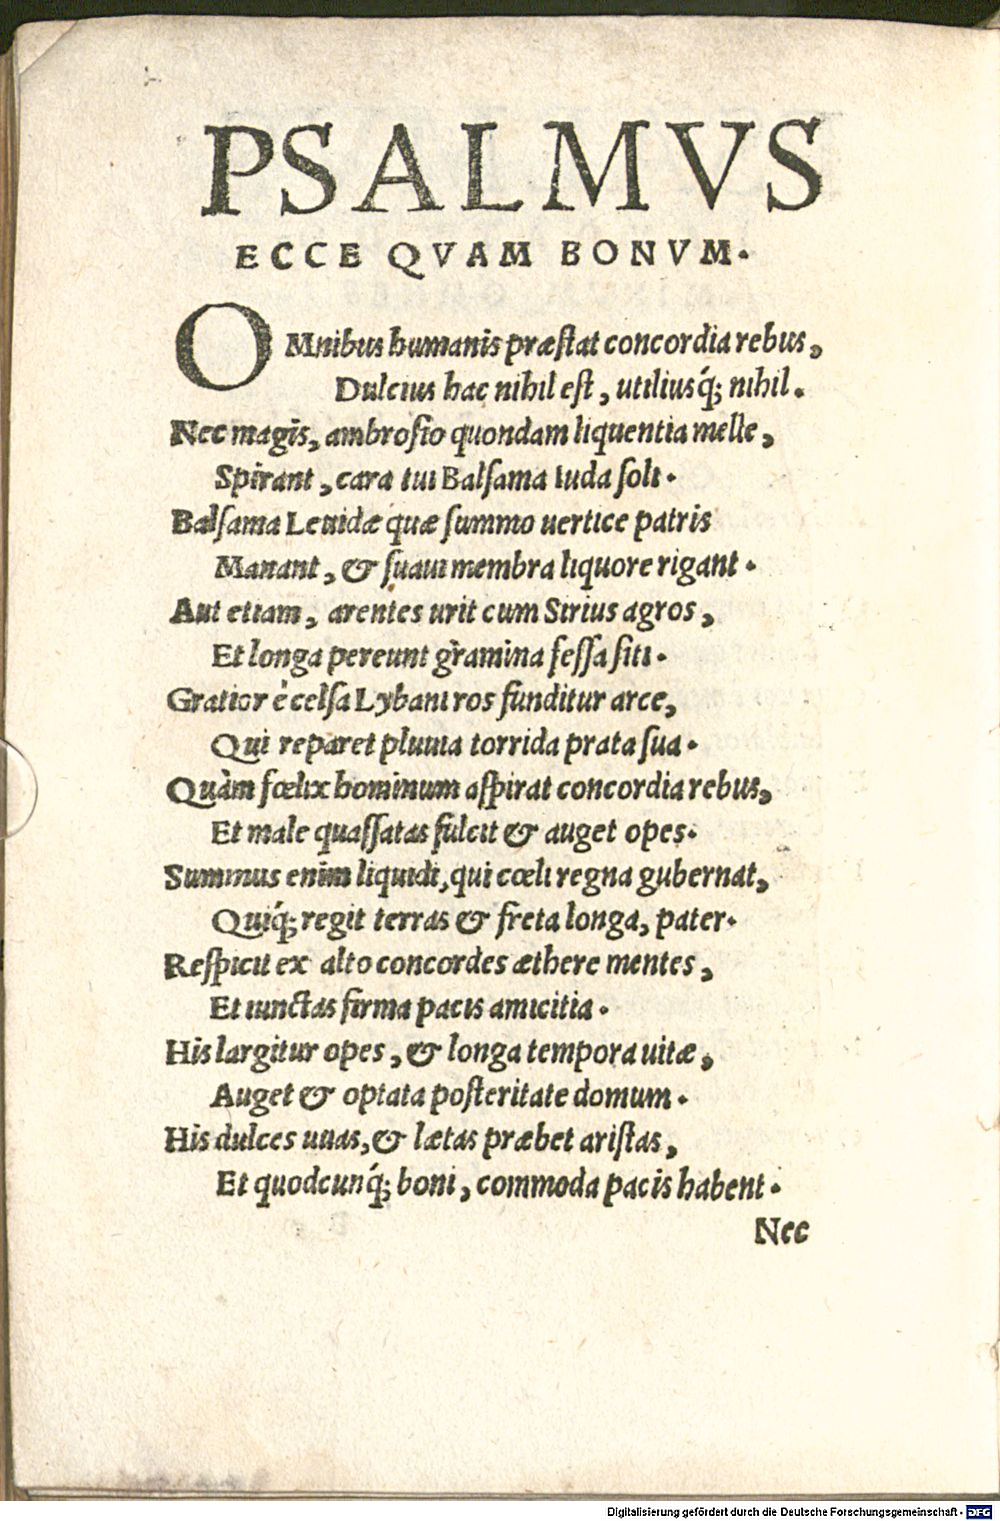 PSALMVS
ECCE QVAM BONVM.
OMnibus humanis præſtat concordia rebus,
Dulcius hac nihil eſt, utiliusq́; nihil.
Nec magis, ambroſio quondam liquentia melle,
Spirant, cara tui Balſama Iuda ſoli.
Balſama Leuidæ quæ ſummo uertice patris
Manant, & ſuaui membra liquore rigant.
Aut etiam, arentes urit cum Sirius agros,
Et longa pereunt gramina feſſa ſiti.
Gratior è celſa Lybani ros funditur arce,
Qui reparet pluuia torrida prata ſua.
Quàm fœlix hominum aſpirat concordia rebus,
Et male quaſſatas fulcit & auget opes.
Summus enim liquidi, qui cœli regna gubernat,
Quiq́; regit terras & freta longa, pater.
Reſpicit ex alto concordes æthere mentes,
Et iunctas firma pacis amicitia.
His largitur opes, & longa tempora uitæ,
Auget & optata poſteritate domum.
His dulces uuas, & lætas præbet ariſtas,
Et quodcunq́; boni, commoda pacis habent.
Nec
Digitalisierung gefördert durch die Deutsche Forschungsgemeinschaft - DFG